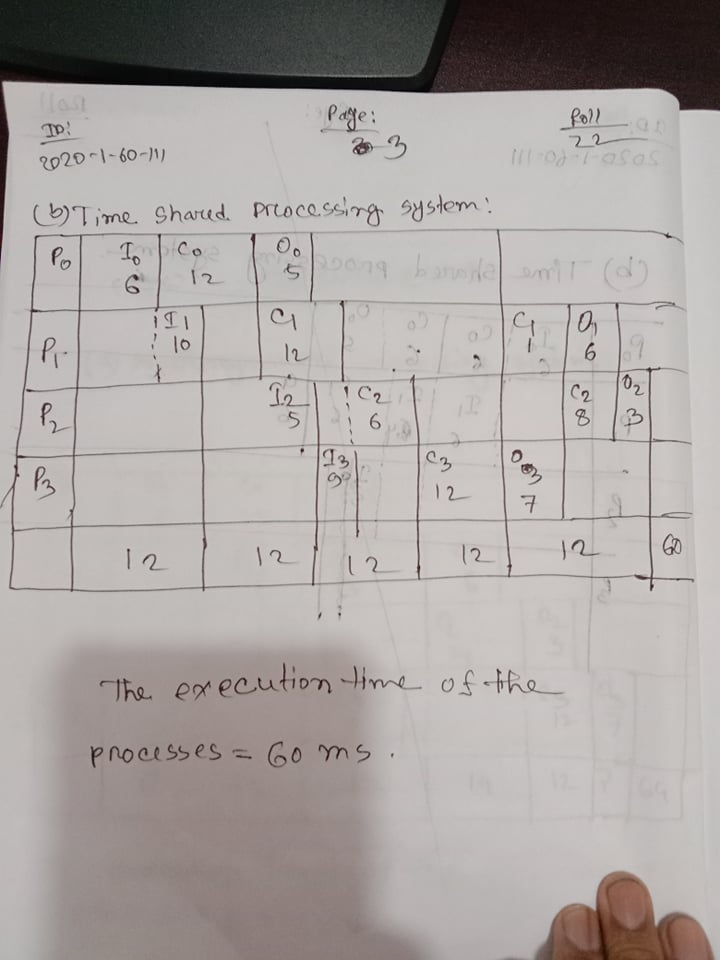 ID:
2020-1-60-111
Page:
3
Roll
22
(b) Time shared processing system:
P0 I0 C0 O0
6 12 5
P1 I1 C1 C1 O1
10 12 1 6
P2 I2 C2 C2 O2
5 6 8 3
P3 I3 C3 O3
9 12 7
12 12 12 12 12 60
The execution time of the
processes = 60 ms.